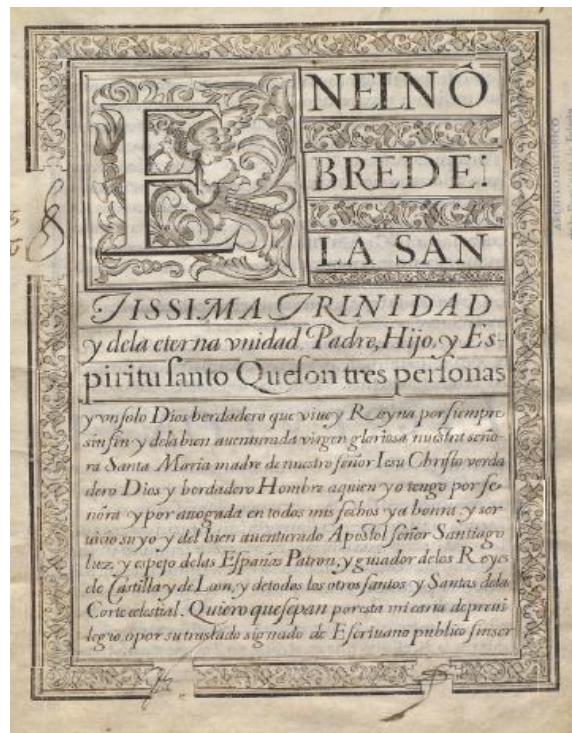 EN EL NÕ
BRE DE
LA SAN
TISSIMA TRINIDAD
y dela eterna vnidad. Padre, Hijo, y Es-
piritu santo Que son tres personas
y vn solo Dios berdadero que viue y Reyna por siempre
sin fin y dela bien auenturada virgen gloriosa nuestra seño-
ra Santa Maria madre de nuestro señor Iesu Christo verda
dero Dios y berdadero Hombre aquien yo tengo por se-
ñora y por auogada en todos mis fechos ya honra y ser
uicio suyo y del bien auenturado Apostol señor Santiago
luz, y espejo delas Españas Patron, y guiador delos Reyes
de Castilla y de Leon, y detodos los otros santos y Santas dela
Corte celestial. Quiero que sepan por esta mi carta de preui
legio, o por su traslado signado de Escriuano publico sin ser